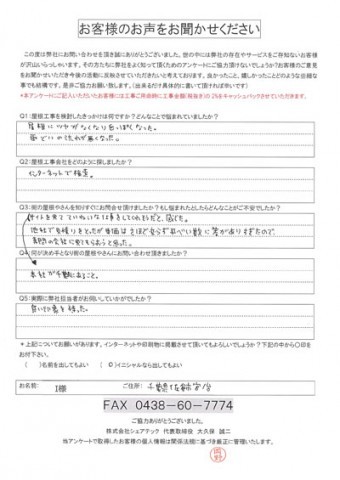 お客様のお声をお聞かせください
この度は弊社にお問い合わせを頂き誠にありがとうございました。世の中には弊社の存在やサービスをご存知ないお客様
が沢山いらっしゃいます。その方たちに弊社をよく知って頂くためのアンケートにご協力頂けないでしょうか?お客様のご意見
をお聞かせいただき今後の活動に反映させていただきたいと考えております。良かったこと、嬉しかったことどのような些細な
事でも結構です。是非ご協力お願い致します。(出来るだけ具体的に書いて頂ければ幸いです)
*本アンケートにご記入いただいたお客様には工事ご用命時に工事金額(税抜き)の2%をキャッシュバックさせていただきます。
Q1:屋根工事を検討したきっかけは何ですか?どんなことで悩まれていましたか?
屋根にツヤがなくなり白っぽくなった。
雨どいの流れが悪くなった。
Q2:屋根工事会社をどのように探しましたか?
インターネットで検索。
Q3:街の屋根やさんを知りすぐにお問合せ頂けましたか?もし悩まれたとしたらどんなことがご不安でしたか?
サイトを見てていねいな仕事をしてくれそうだと、感じた。
他社で見積りをとったが単価はさほど変らず
専門の会社に見てもらおうと思った。
Q4:何が決め手となり街の屋根やさんにお問い合わせ頂きましたか?
本社が千葉にあること。
Q5:実際に弊社担当者がお伺いしていかがでしたか?
良い印象を持った。
*上記についてお願いがあります。インターネットや印刷物に掲載させて頂いてもよろしいでしょうか?下記の中から〇印を
お付け下さい。
( )名前を出してもよい (〇)イニシャルなら出してもよい
お名前: I様 ご住所: 千葉県佐倉市
FAX 0438-60-7774
ご協力ありがとうございました。
株式会社シェアテック 代表取締役 大久保 誠二
当アンケートで取得したお客様の個人情報は関係法規に基づき厳正に管理いたします。